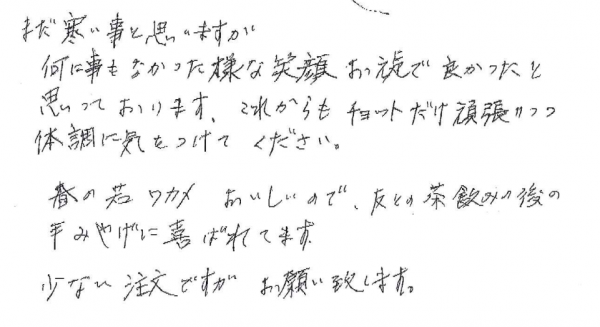 まだ寒い事と思いますが
何に事もなかった様な笑顔 お元気で良かったと
思っております。これからもチョットだけ頑張りつつ
体調に気をつけてください。
春の若ワカメ おいしいので、友との茶飲みの後の
手みやげに喜ばれてます。
少ない注文ですが お願い致します。